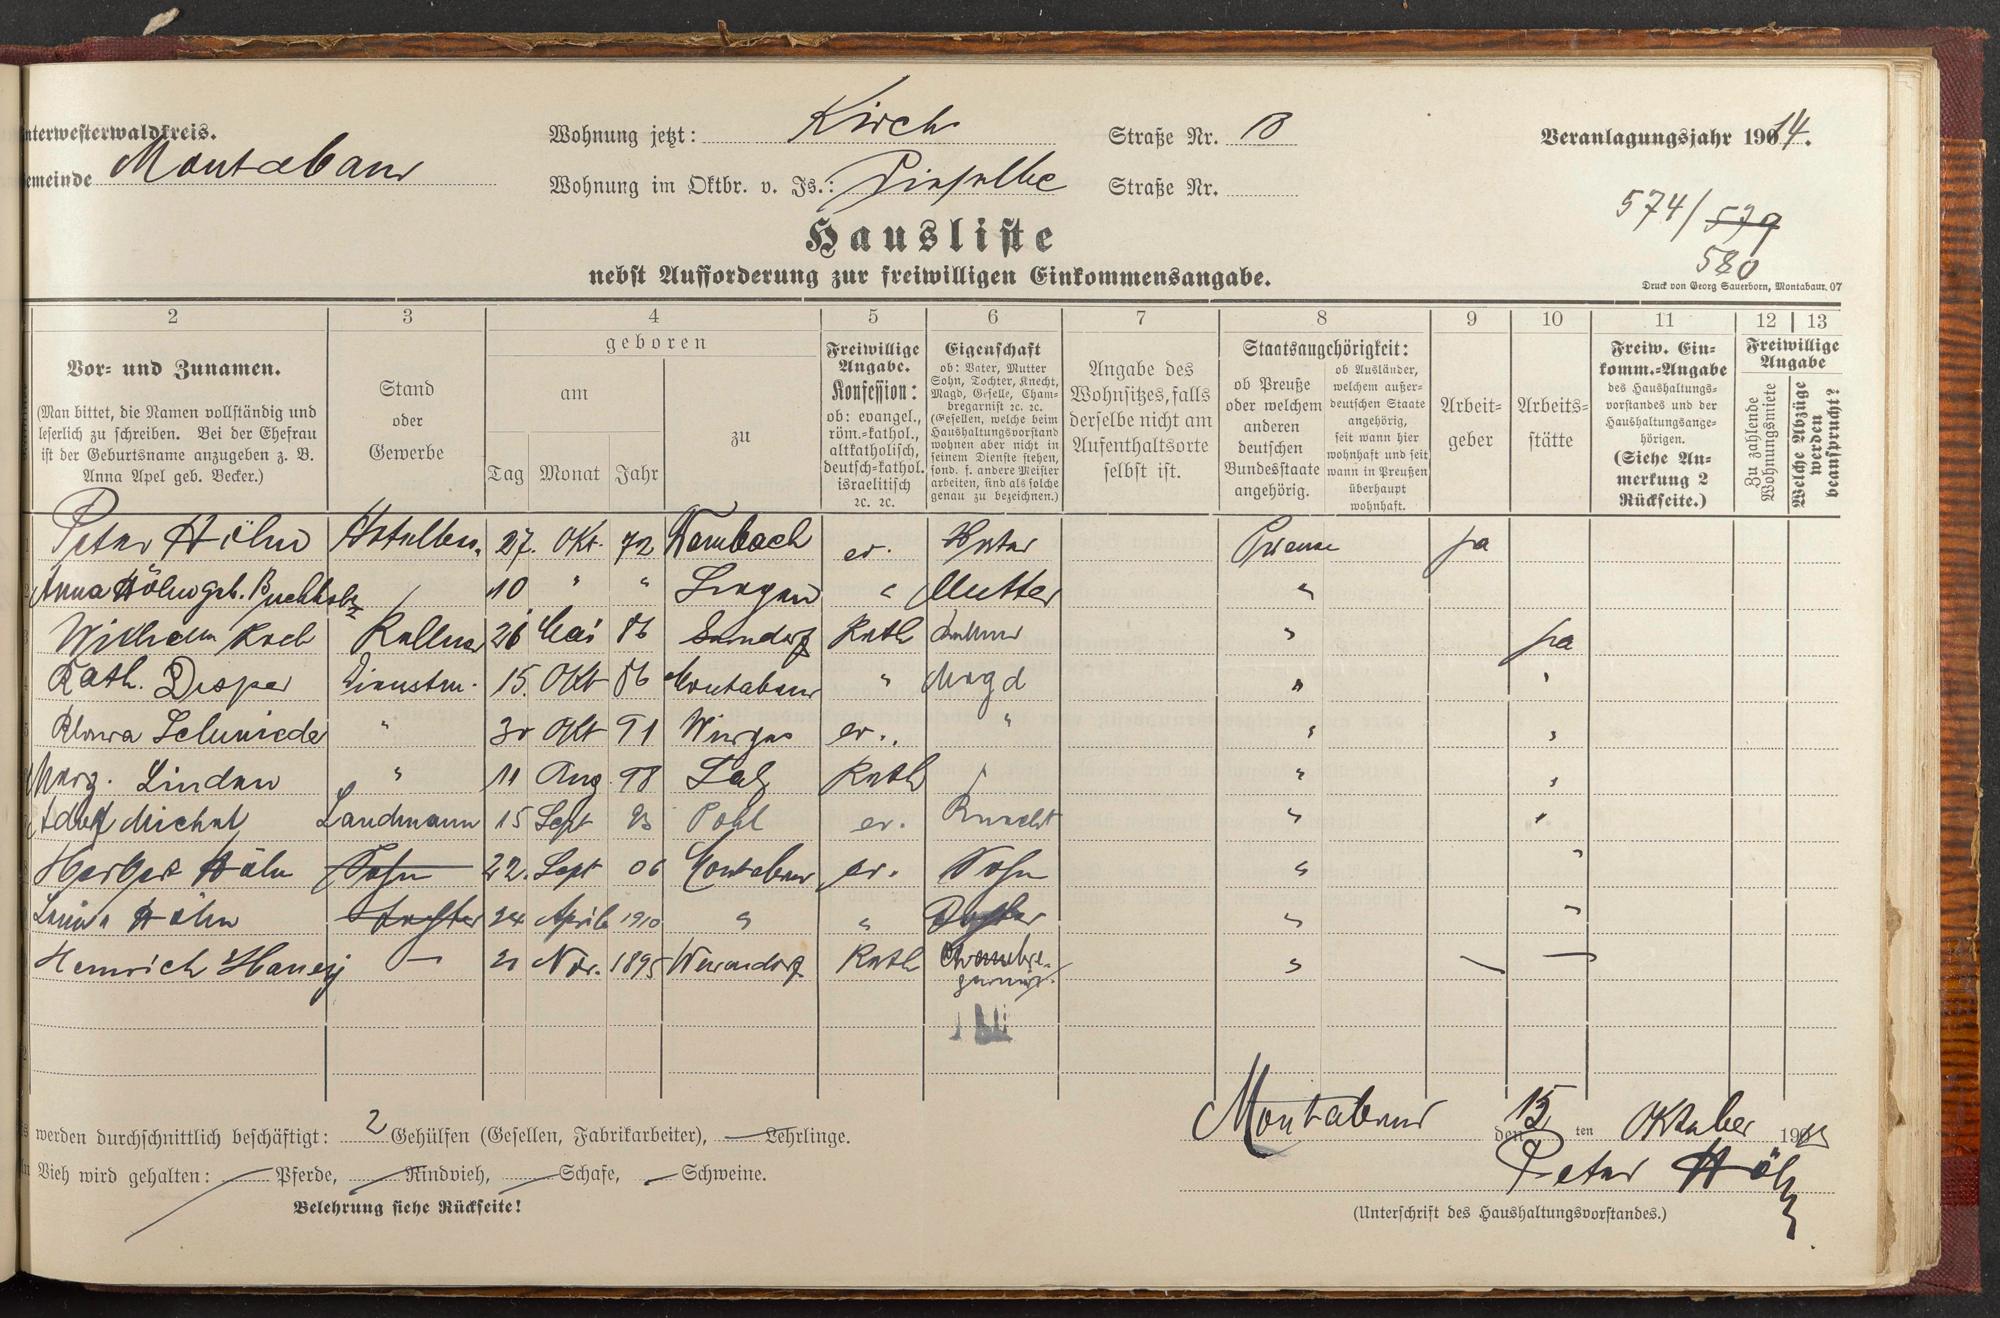 nterwesterwaldkreis.
Wohnung jetzt: Kirch Straße Nr. 13
Veranlagungsjahr 1914.
emeinde Montabaur
Wohnung im Oktbr. v. Js.: Dieselbe Straße Nr.
574/579
580
Hausliste
nebst Aufforderung zur freiwilligen Einkommensangabe.
Druck von Georg Sauerborn, Montabaur. 07
2 3 4 5 6 7 8 9 10 11 12 13
Vor- und Zunamen.
(Man bittet, die Namen vollständig und
leserlich zu schreiben. Bei der Ehefrau
ist der Geburtsname anzugeben z. B.
Anna Apel geb. Becker.)
Stand
oder
Gewerbe
geboren
am
Tag Monat Jahr
zu
Freiwillige
Angabe.
Konfession:
ob: evangel.,
röm.-kathol.,
altkatholisch,
deutsch-kathol.
israelitisch
ꝛc. ꝛc.
Eigenschaft
ob: Vater, Mutter
Sohn, Tochter, Knecht,
Magd, Geselle, Cham-
bregarnist ꝛc. ꝛc.
(Gesellen, welche beim
Haushaltungsvorstand
wohnen aber nicht in
seinem Dienste stehen,
sond. f. andere Meister
arbeiten, sind als solche
genau zu bezeichnen.)
Angabe des
Wohnsitzes, falls
derselbe nicht am
Aufenthaltsorte
selbst ist.
Staatsangehörigkeit:
ob Preuße
oder welchem
anderen
deutschen
Bundesstaate
angehörig.
ob Ausländer,
welchem außer-
deutschen Staate
angehörig,
seit wann hier
wohnhaft und seit
wann in Preußen
überhaupt
wohnhaft.
Arbeit-
geber
Arbeits-
stätte
Freiw. Ein-
komm.-Angabe
des Haushaltungs-
vorstandes und der
Haushaltungsange-
hörigen.
(Siehe An-
merkung 2
Rückseite.)
Freiwillige
Angabe
Zu zahlende
Wohnungsmiete
Welche Abzüge
werden
beansprucht?
Peter Höhn Hotelbes. 27. Okt. 72 Wambach ev. Vater Preuse ja
Anna Höhn geb. Buchholz 10 " " " Mutter "
Wilhelm Koch Kellner 26 Mai 86 Kath Kellner " ja
Kath. Disper Dienstm. 15. Okt 86 Montabaur " Magd " "
Schmiede " 30 Okt 91 ev. " " "
Marg. Lindau " 11 Aug 98 Kath " "
Adolf Michel Landmann 15 Sept 93 Pohl ev. Knecht " "
Höhn Sohn 22. Sept 06 Montabaur ev. Sohn " "
Höhn Tochter 24 April 1910 " " Tochter " "
Heinrich — 21 Nov. 1895 Kath Chambre- " — —
garnist.
werden durchschnittlich beschäftigt: 2 Gehülfen (Gesellen, Fabrikarbeiter), — Lehrlinge.
Vieh wird gehalten: — Pferde, — Rindvieh, — Schafe, — Schweine.
Belehrung siehe Rückseite!
Montabaur den 15 ten Oktober 1913
Peter Höhn
(Unterschrift des Haushaltungsvorstandes.)